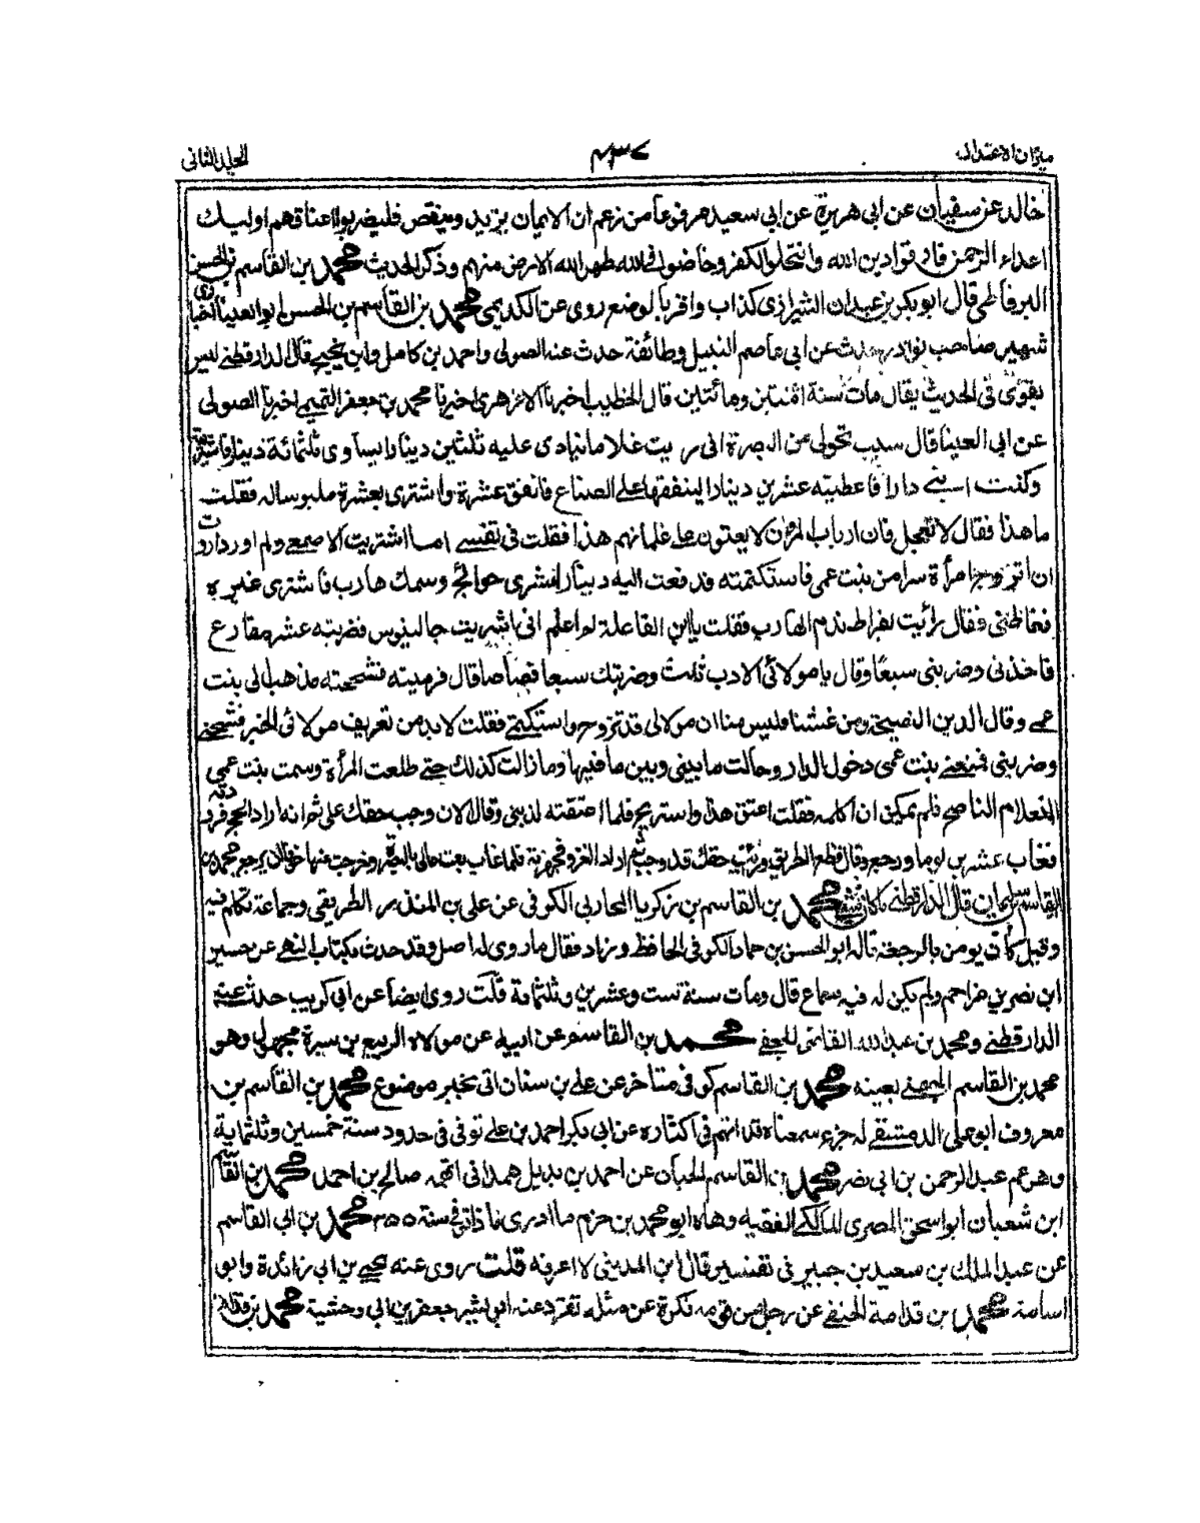 ميزان الاعتدال
٤٣٧
الجلد الثانى
خالد عن سفيان عن ابى هريرة عن ابى سعيد مرفوعا من زعم ان الايمان يزيد وينقص فليضربوا اعناقهم اوليك
اعداء الرحمن فارقوا دين الله وانتحلوا الكفر وخاضوا فى الله طهر الله الارض منهم وذكر الحديث محمد بن القاسم بن الحسن
البرفاطى قال ابو بكر بن عبدان الشيرازى كذاب واقر بالوضع روى عن الكديمى محمد بن القاسم بن الحسن ابو العينا
شهير صاحب نوادر حدث عن ابى عاصم النبيل وطائفة حدث عنه الصولى واحمد بن كامل وابن نجيح قال الدارقطنى ليس
بقوى فى الحديث يقال مات سنة اثنتين ومائتين قال الخطيب اخبرنا الازهرى اخبرنا محمد بن جعفر التميمى اخبرنا الصولى
عن ابى العينا قال سبب تحولى من البصرة انى ريت غلاما ينادى عليه ثلثين دينارا يساوى ثلثمائة دينار فاشتريته
وكنت ابنى دارا فاعطيته عشرين دينارا لينفقها على الصناع فانفق عشرة واشترى بعشرة ملبوسا له فقلت
ما هذا فقال لا تعجل فان ارباب المروات لا يعتبون على غلمانهم هذا فقلت فى نفسى انما اشتريت الاصمعى ولم ادر واردت
ان اتزوج امرأة سرا من بنت عمى فاستكتمته فدفعت اليه دينارا ليشترى حوائج وسمك هازب فاشترى غيره
فغاظنى فقال رائيت بقراط يذم الهازب فقلت يا ابن الفاعلة لم اعلم انى اشتريت جالينوس فضربته عشر مقارع
فاخذنى وضربنى سبعا وقال يا مولائى الادب ثلث وضربتك سبعا قصاصا قال فرميته فشججته فذهب الى بنت
عمى وقال الدين النصيحة ومن غشنا فليس منا ان مولاى قد تزوج واستكتمنى فقلت لابد من تعريف مولاتى الخبر فشجنى
وضربنى فمنعنى بنت عمى دخول الدار وحالت ما بينى وبين ما فيها وما زالت كذلك حتى طلقت المرأة وسمت بنت عمى
الغلام الناصح فلم يمكن ان اكلمه فقلت اعتق هذا واستريح فلما اعتقته لزمنى وقال الان وجب حقك على ثم انه اراد الحج فزودته
فغاب عشرين يوما ورجع وقال قطع الطريق ورئيت حقك قد وجب ثم اراد الغزو فجهزته فلما غاب بعت مالى بالبصرة وخرجت عنها خوفا ان يرجع محمد بن
القاسم بن سليمان قال الدارقطنى محمد بن القاسم بن زكريا المحاربى الكوفى عن على بن المنذر الطريقى وجماعة تكلم فيه
وقيل كان يومن بالرجعة قاله ابو الحسن بن حماد الكوفى الحافظ وزاد فقال ما روى له اصل وقد حدث بكتاب النهى عن حسين
ابن نصر بن مزاحم ولم يكن له فيه سماع قال ومات سنة ست وعشرين وثلثماة قلت روى ايضا عن ابى كريب حدث عنه
الدارقطنى ومحمد بن عبد الله القاضى الجعفى محمد بن القاسم عن ابيه عن مولاه الربيع بن سبرة مجهول وهو
محمد بن القاسم الجهنى بعينه محمد بن القاسم كوفى متاخر عن على بن سنان اتى بخبر موضوع محمد بن القاسم بن
معروف ابو على الدمشقى له جزء سمعناه قد اتهم فى اكثاره عن ابى بكر احمد بن على توفى فى حدود سنة خمسين وثلثماية
وهو عم عبد الرحمن بن ابى نصر محمد بن القاسم الحبان عن احمد بن بديل همدانى اتهمه صالح بن احمد محمد بن القاسم
ابن شعبان ابو اسحق المصرى المالكى الفقيه وهاه ابو محمد بن حزم ما ادرى لماذا توفى سنة ٣٥٥ محمد بن ابى القاسم
عن عبد الملك بن سعيد بن جبير فى تفسير قال ابن المدينى لا اعرفه قلت روى عنه يحيى بن ابى زائدة وابو
اسامة محمد بن قدامة الحنفى عن رجل من قومه نكرة عن مثله تفرد عنه ابو بشير جعفر بن ابى وحشية محمد بن قدامة